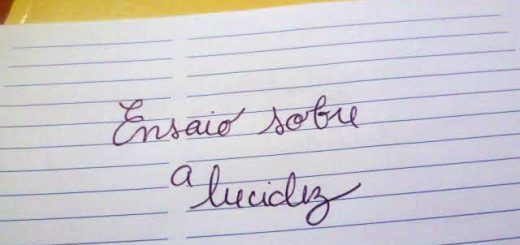 Ensaio sobre
a lucidez